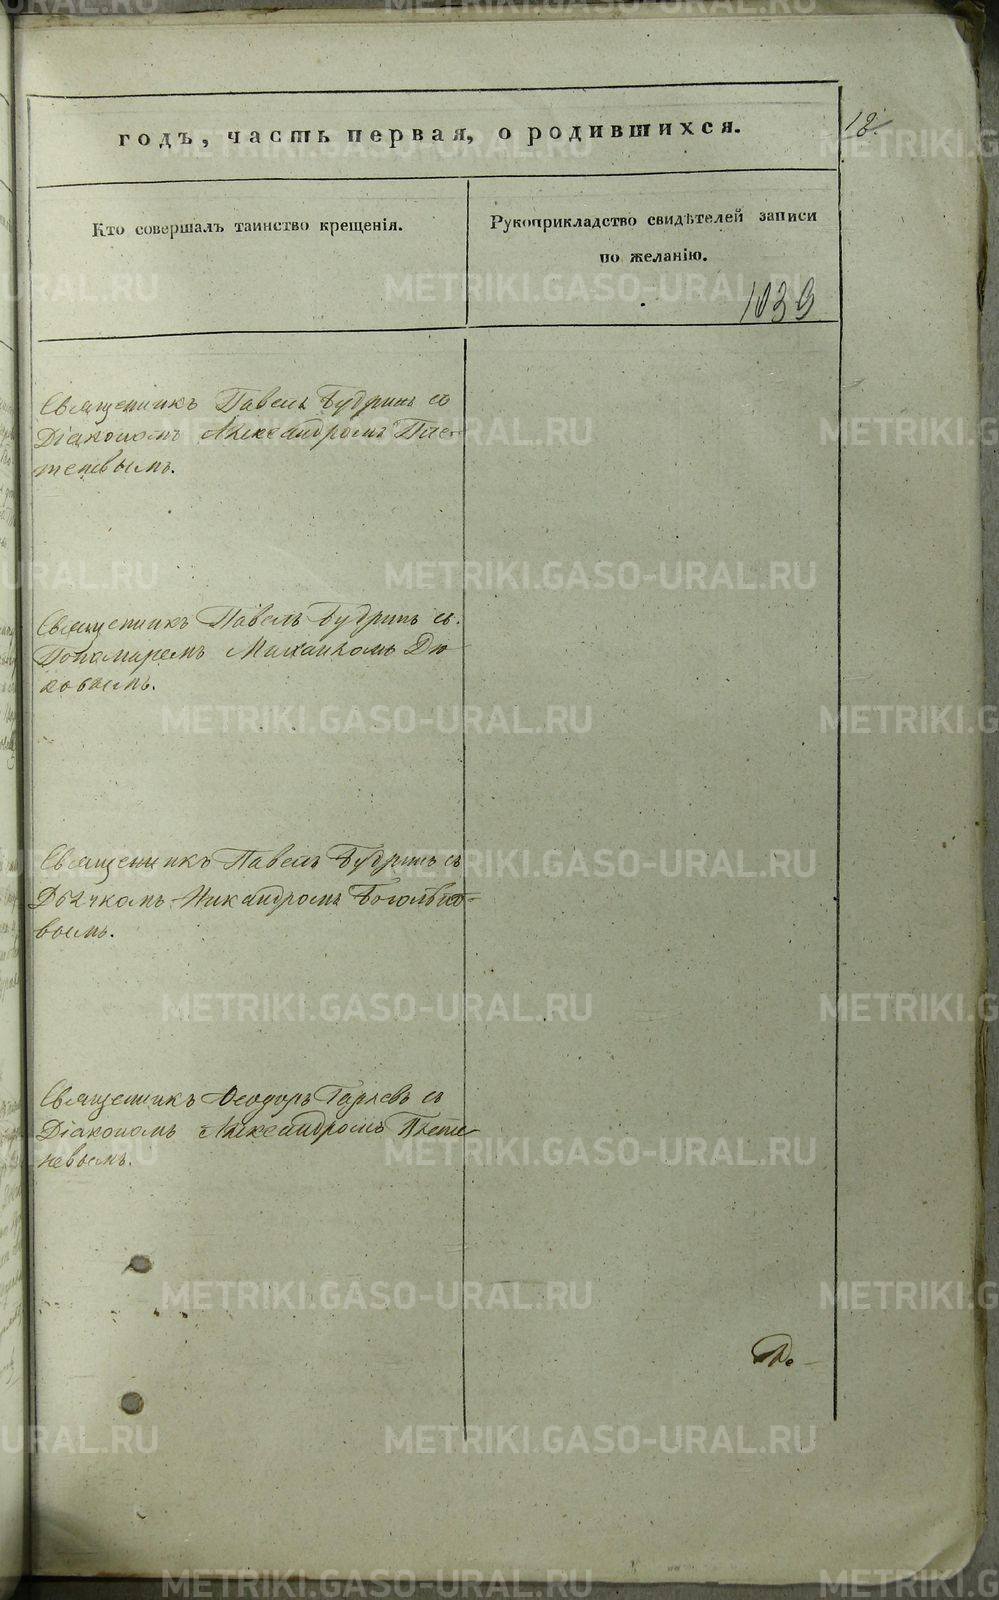 годъ, часть первая, о родившихся.
18.
Кто совершалъ таинство крещенія.
Рукоприкладство свидѣтелей записи
по желанію.
1039
Священникъ Павелъ Будринъ со
Діакономъ Александромъ Пле-
теневымъ.
Священникъ Павелъ Будринъ съ
Пономаремъ Михаиломъ Дю
ковымъ.
Священникъ Павелъ Будринъ съ
Дьячкомъ Никандромъ Боголѣпо-
вымъ.
Священникъ Ѳеодоръ съ
Діакономъ Александромъ Плете
невымъ.
METRIKI.GASO-URAL.RU